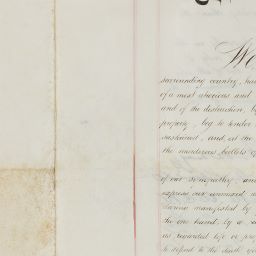 We
surrounding country, hav
of a most atrocious and
and of the destruction, by
property, beg to tender
sustained, and at the
the murderous bullets of
of our sympathy, and
express our unmixed
manifested by
the one hand, by a
as regarded life or pro
to defend to the death you